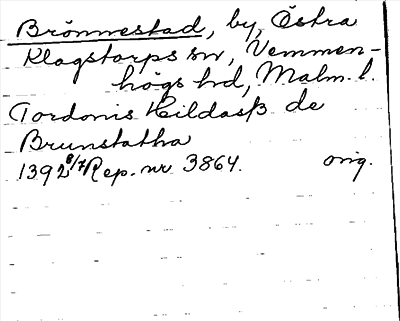 Brönnestad, by, Östra
Klagstorps sn, Vemmen-
högs hd, Malm. l.
Tordonis Hildass de
Brunstatha
1392 8/7 Rep. nr 3864. orig.